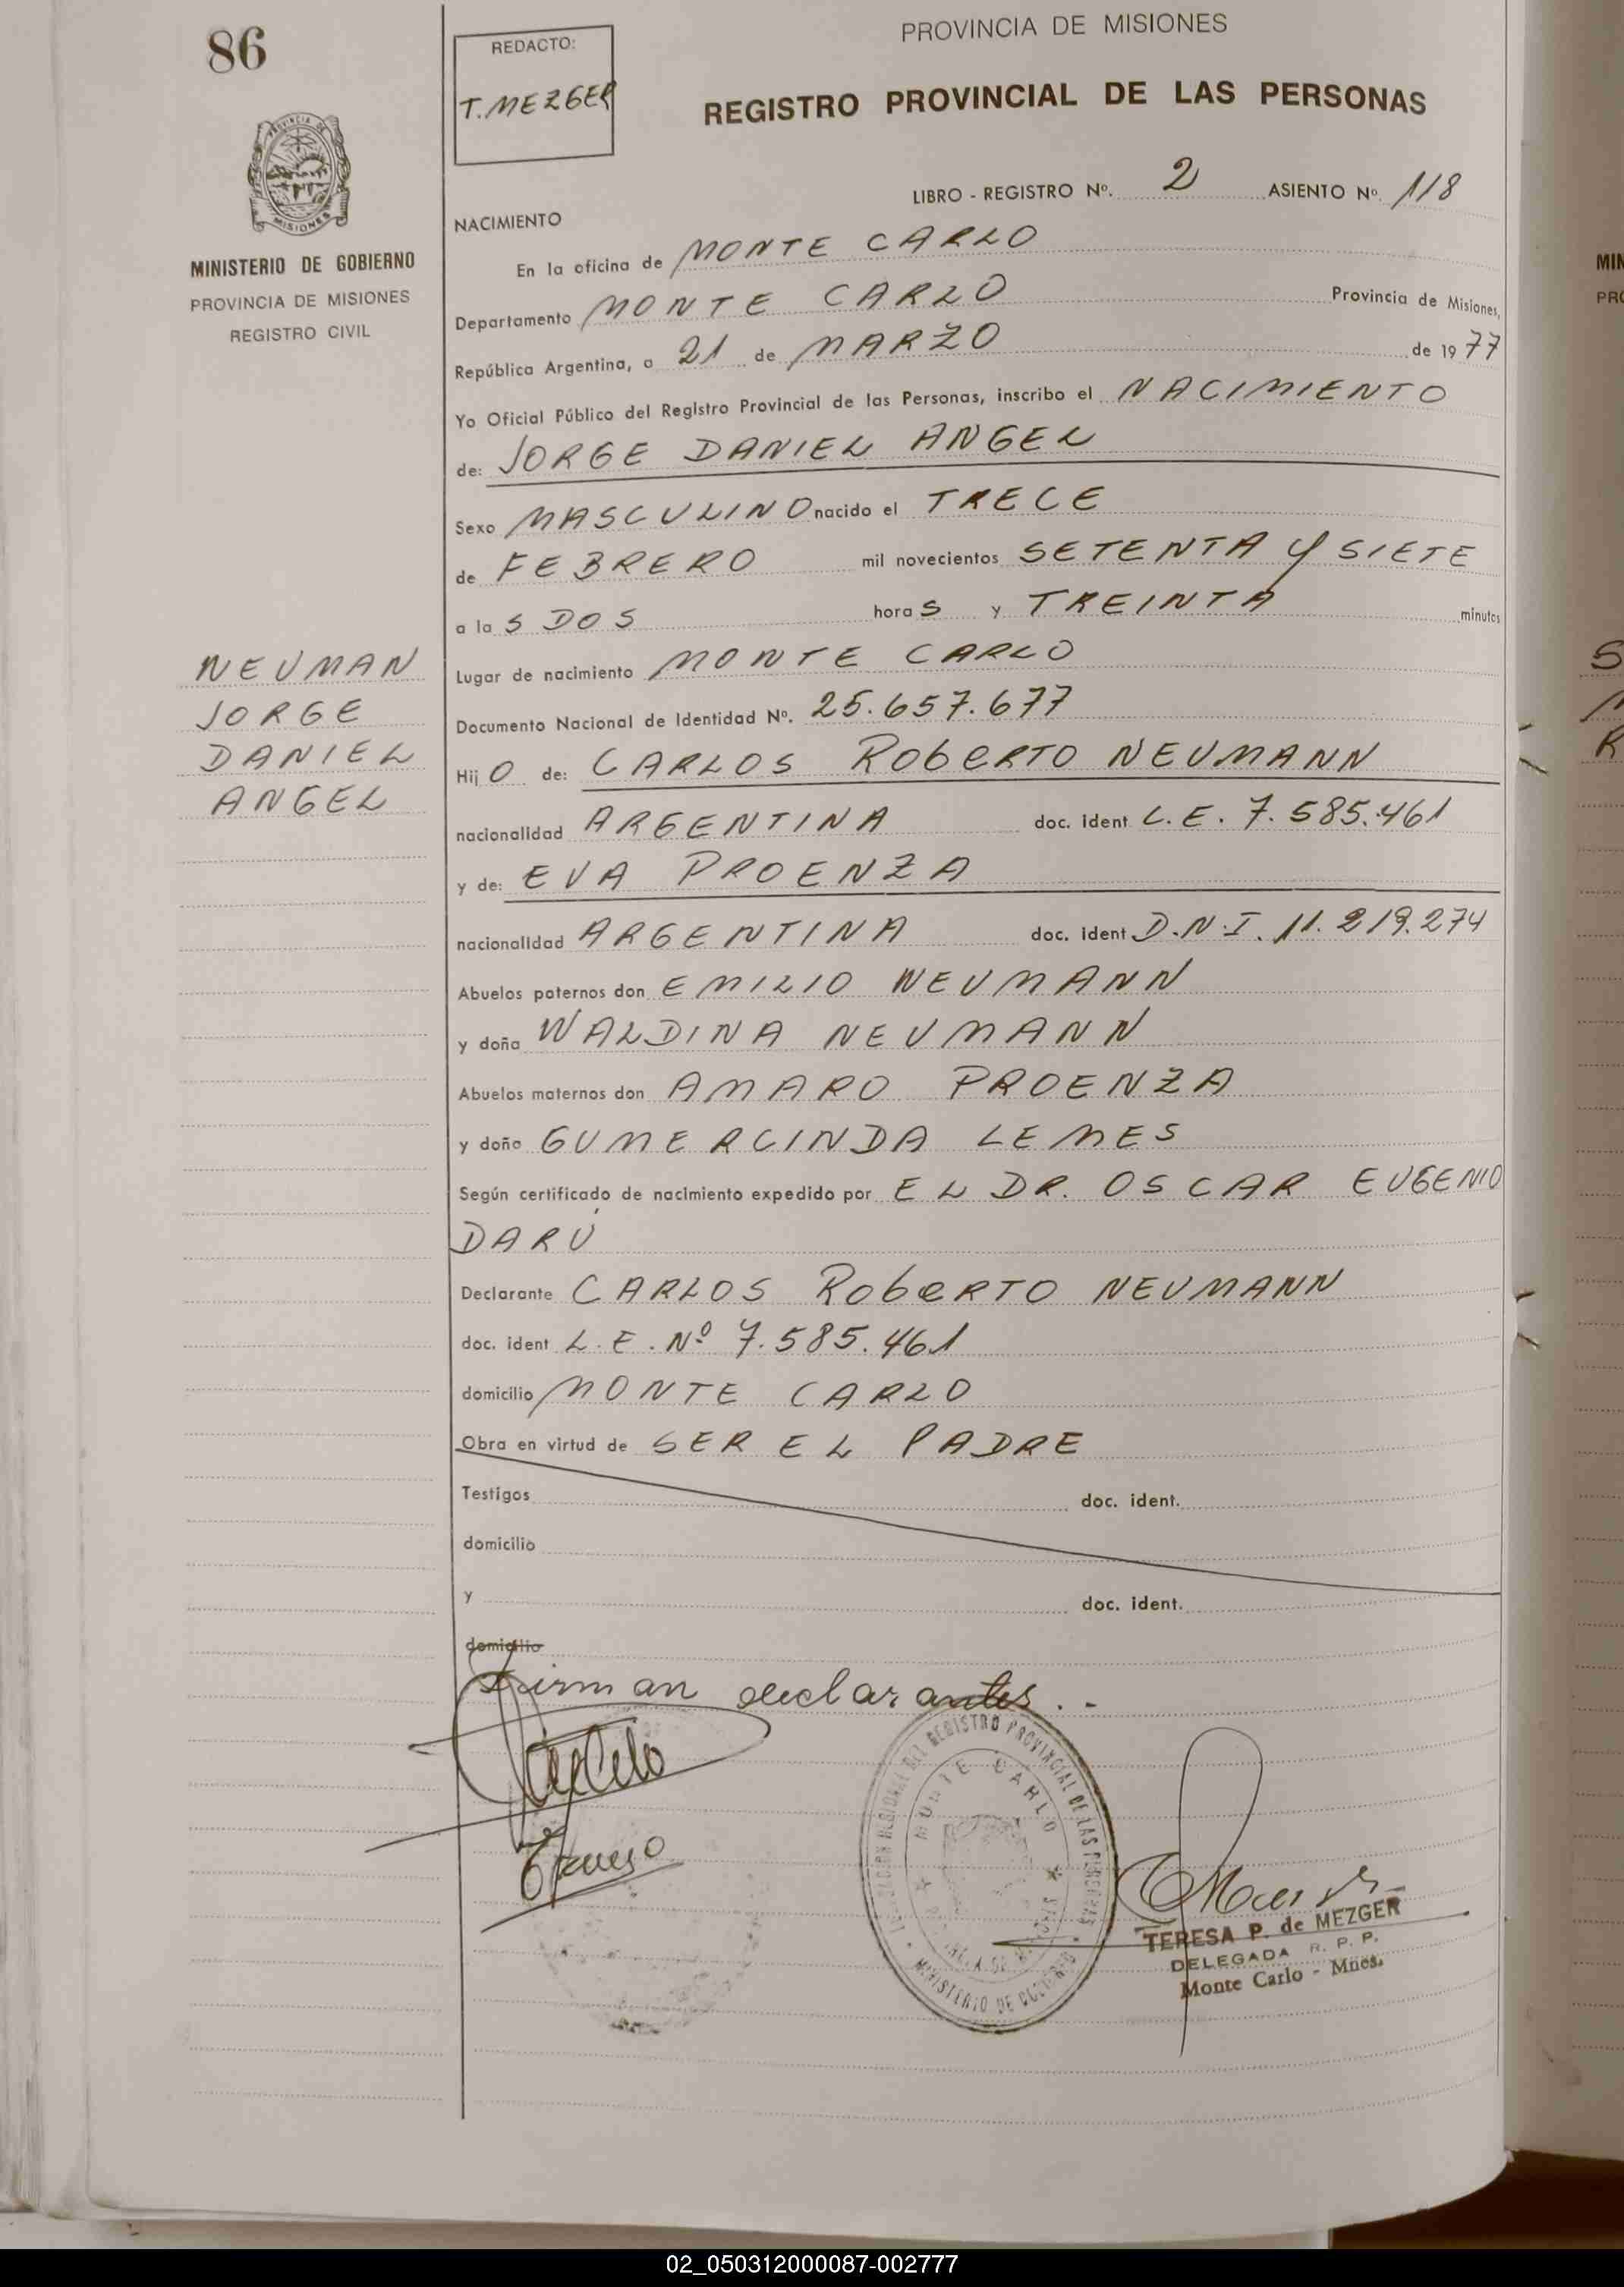 86
REDACTO:
T. MEZGER
PROVINCIA DE MISIONES
REGISTRO PROVINCIAL DE LAS PERSONAS
LIBRO - REGISTRO Nº. 2 ASIENTO Nº. 118
MINISTERIO DE GOBIERNO
PROVINCIA DE MISIONES
REGISTRO CIVIL
NACIMIENTO
En la oficina de MONTE CARLO
Departamento MONTE CARLO Provincia de Misiones,
República Argentina, a 21 de MARZO de 1977
Yo Oficial Público del Registro Provincial de las Personas, inscribo el NACIMIENTO
de: JORGE DANIEL ANGEL
Sexo MASCULINO nacido el TRECE
de FEBRERO mil novecientos SETENTA Y SIETE
a las DOS horas y TREINTA minutos
NEUMAN
JORGE
DANIEL
ANGEL
Lugar de nacimiento MONTE CARLO
Documento Nacional de Identidad Nº. 25.657.677
Hijo de: CARLOS ROBERTO NEUMANN
nacionalidad ARGENTINA doc. ident L.E. 7.585.461
y de: EVA PROENZA
nacionalidad ARGENTINA doc. ident D.N.I. 11.219.274
Abuelos paternos don EMILIO NEUMANN
y doña WALDINA NEUMANN
Abuelos maternos don AMARO PROENZA
y doña GUMERCINDA LEMES
Según certificado de nacimiento expedido por EL DR. OSCAR EUGENIO
DARÚ
Declarante CARLOS ROBERTO NEUMANN
doc. ident L.E. Nº 7.585.461
domicilio MONTE CARLO
Obra en virtud de SER EL PADRE
Testigos doc. ident.
domicilio
y doc. ident.
domicilio
Firman declarantes.-
MONTE CARLO
REGISTRO PROVINCIAL DE LAS PERSONAS
MINISTERIO DE GOBIERNO
TERESA P. de MEZGER
DELEGADA R. P. P.
Monte Carlo - Mnes.
02_050312000087-002777